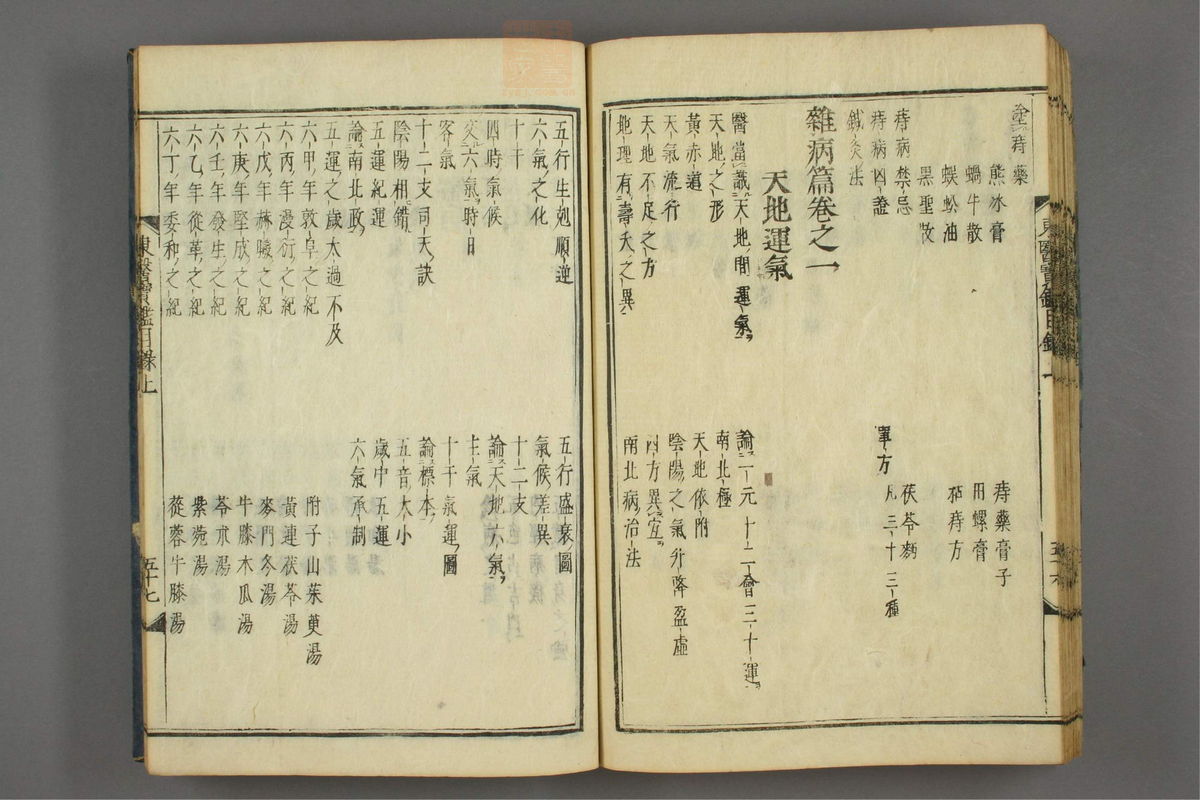 塗痔藥
熊冰膏
蝸牛散
蜈蚣油
黑聖散
痔病禁忌
痔病凶證
鍼灸法
痔藥膏子
田螺膏
枯痔方
茯苓麪
單方
凡三十三種
雜病篇卷之一
天地運氣
醫當識天地間運氣
天地之形
黃赤道
天氣流行
天地不足之方
地理有壽夭之異
論一元十二會三十運
南北極
天地依附
陰陽之氣升降盈虛
四方異宜
南北病治法
東醫寶鑑目錄
五十六
五行生剋順逆
六氣之化
十干
四時氣候
交六氣時日
客氣
十二支司天訣
陰陽相錯
五運紀運
論南北政
五運之歲太過不及
六甲年敦阜之紀
六丙年漫衍之紀
六戊年赫曦之紀
六庚年堅成之紀
六壬年發生之紀
六乙年從革之紀
六丁年委和之紀
五行盛衰圖
氣候差異
十二支
論天地六氣
主氣
十干氣運圖
論標本
五音大小
歲中五運
六氣承制
附子山茱萸湯
黃連茯苓湯
麥門冬湯
牛膝木瓜湯
苓朮湯
紫菀湯
蓯蓉牛膝湯
東醫寶鑑目錄上
五十七